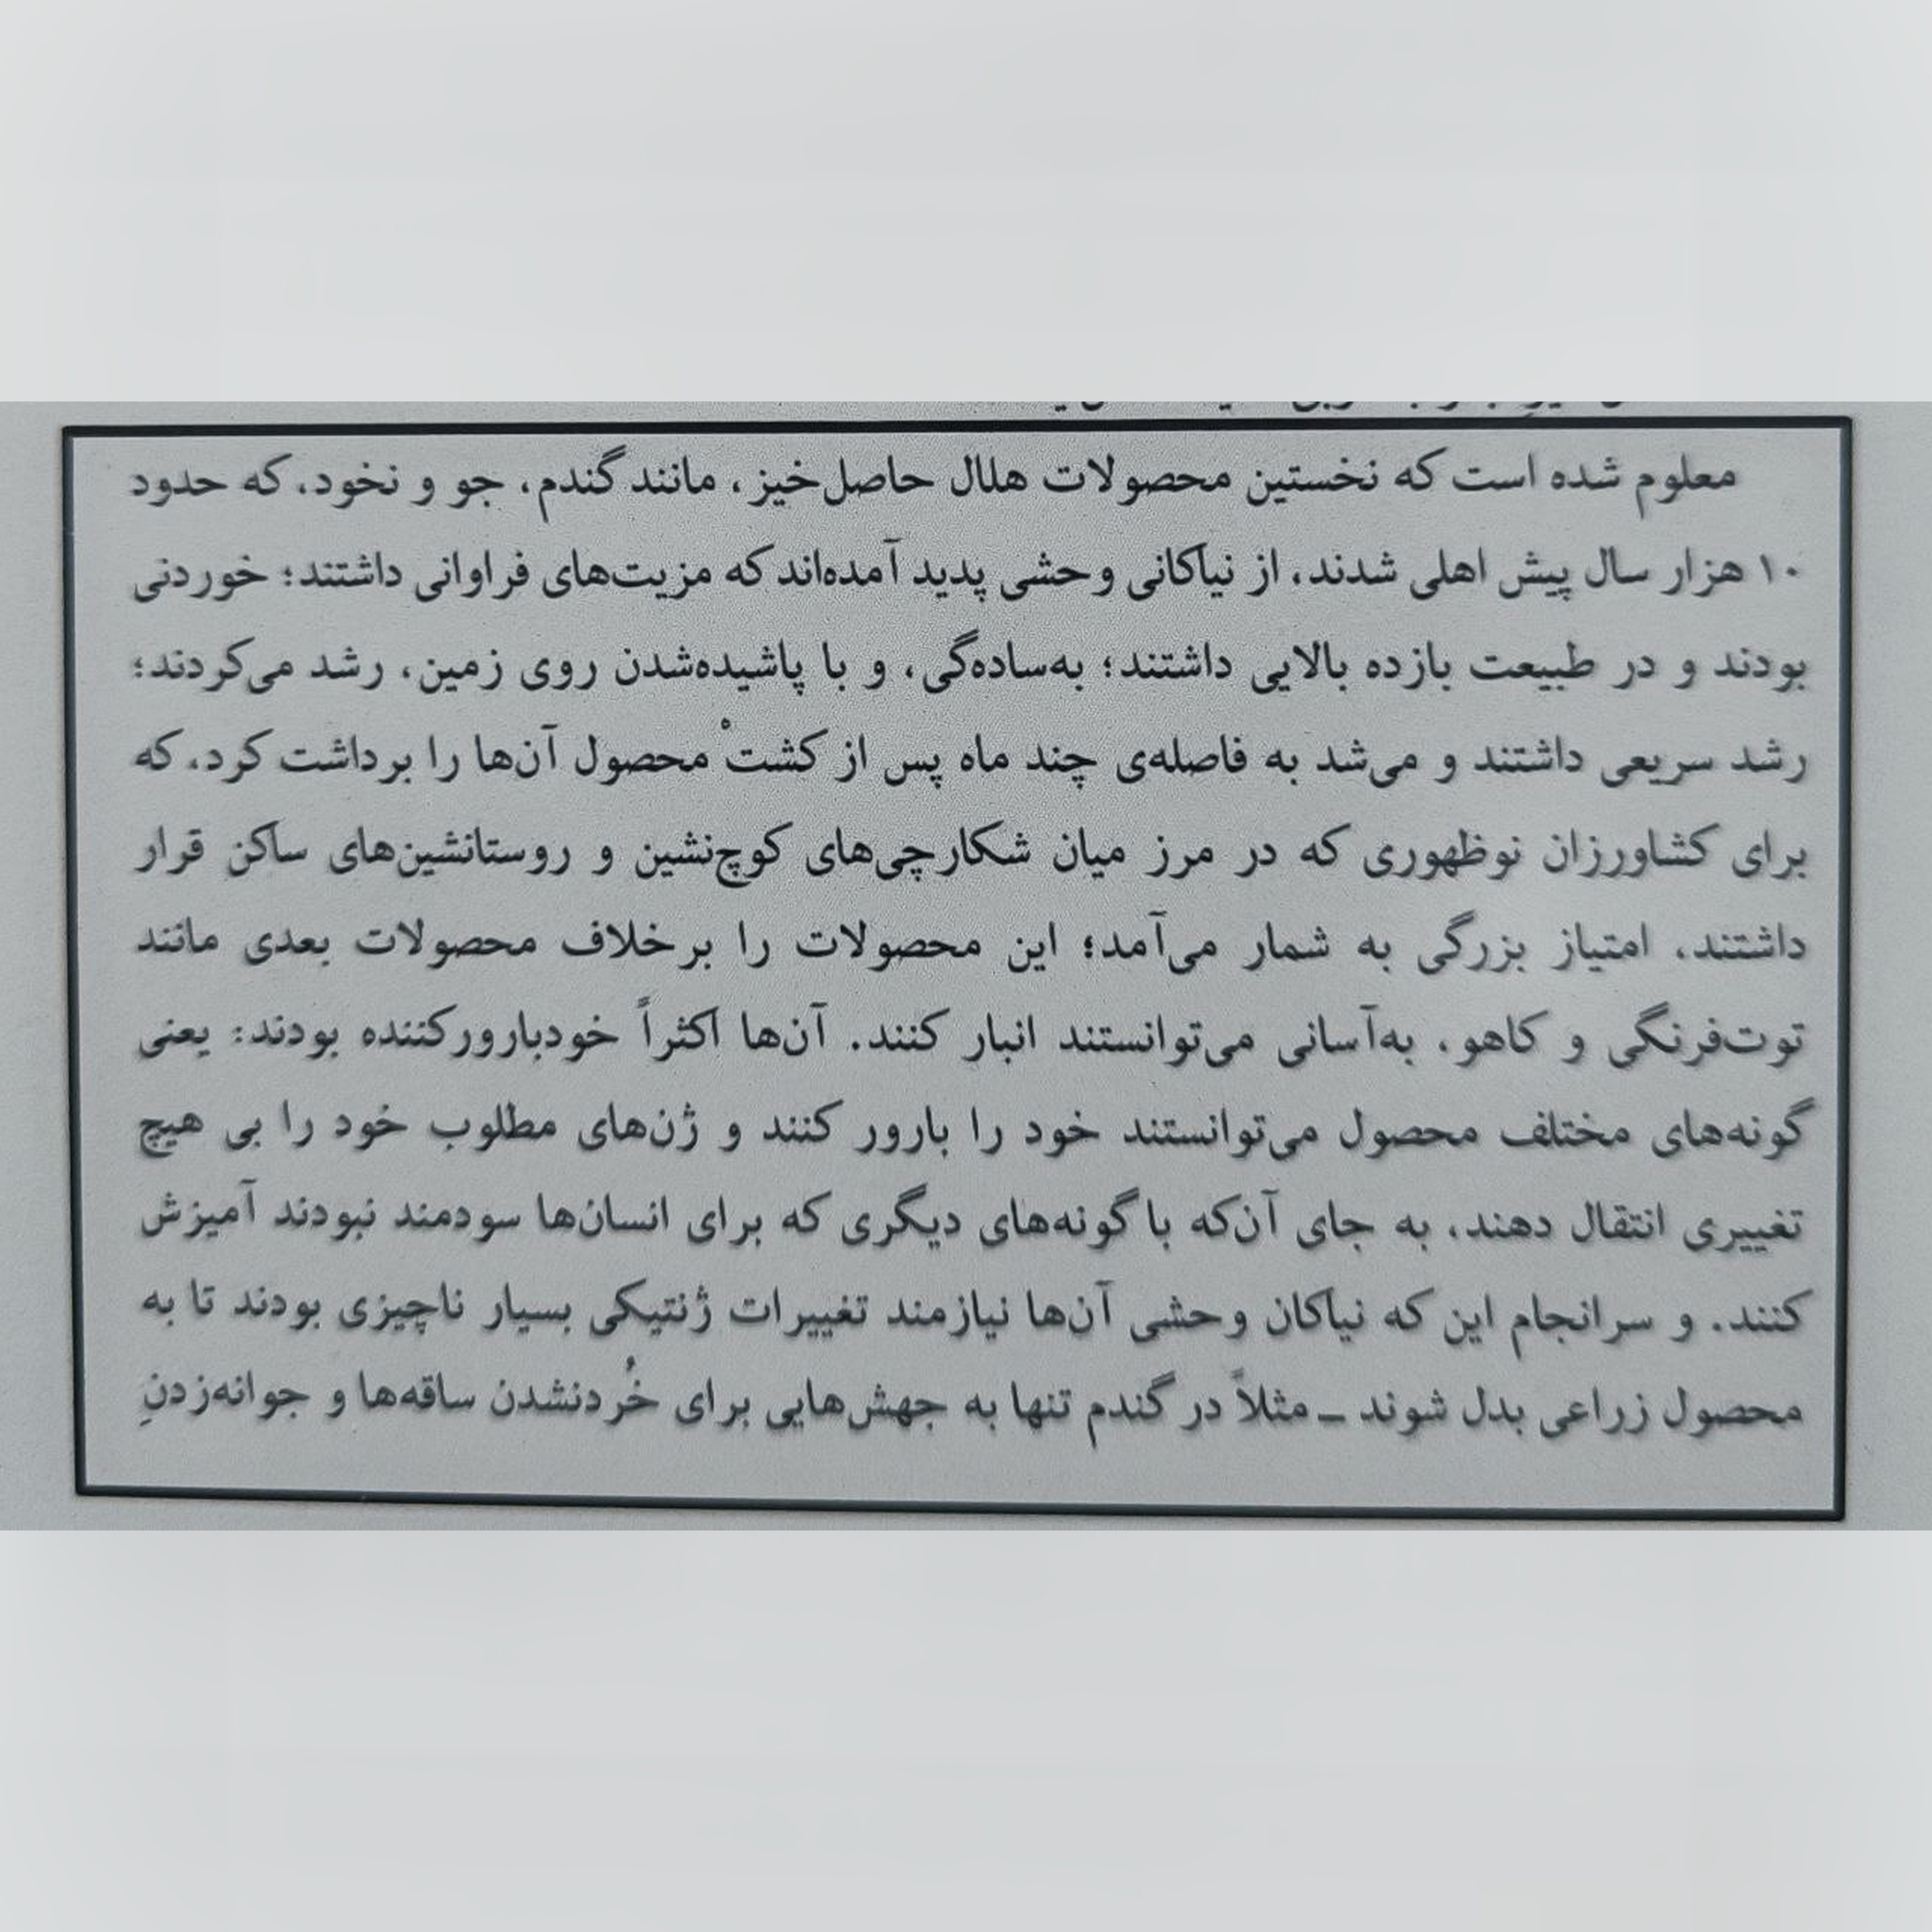 معلوم شده است که نخستین محصولات هلال حاصل‌خیز، مانند گندم، جو و نخود، که حدود
۱۰ هزار سال پیش اهلی شدند، از نیاکانی وحشی پدید آمده‌اند که مزیت‌های فراوانی داشتند؛ خوردنی
بودند و در طبیعت بازده بالایی داشتند؛ به‌ساده‌گی، و با پاشیده‌شدن روی زمین، رشد می‌کردند؛
رشد سریعی داشتند و می‌شد به فاصله‌ی چند ماه پس از کشتْ محصول آن‌ها را برداشت کرد، که
برای کشاورزان نوظهوری که در مرز میان شکارچی‌های کوچ‌نشین و روستانشین‌های ساکن قرار
داشتند، امتیاز بزرگی به شمار می‌آمد؛ این محصولات را برخلاف محصولات بعدی مانند
توت‌فرنگی و کاهو، به‌آسانی می‌توانستند انبار کنند. آن‌ها اکثراً خودبارورکننده بودند: یعنی
گونه‌های مختلف محصول می‌توانستند خود را بارور کنند و ژن‌های مطلوب خود را بی هیچ
تغییری انتقال دهند، به جای آن‌که با گونه‌های دیگری که برای انسان‌ها سودمند نبودند آمیزش
کنند. و سرانجام این که نیاکان وحشی آن‌ها نیازمند تغییرات ژنتیکی بسیار ناچیزی بودند تا به
محصول زراعی بدل شوند ــ مثلاً در گندم تنها به جهش‌هایی برای خُردنشدن ساقه‌ها و جوانه‌زدنِ